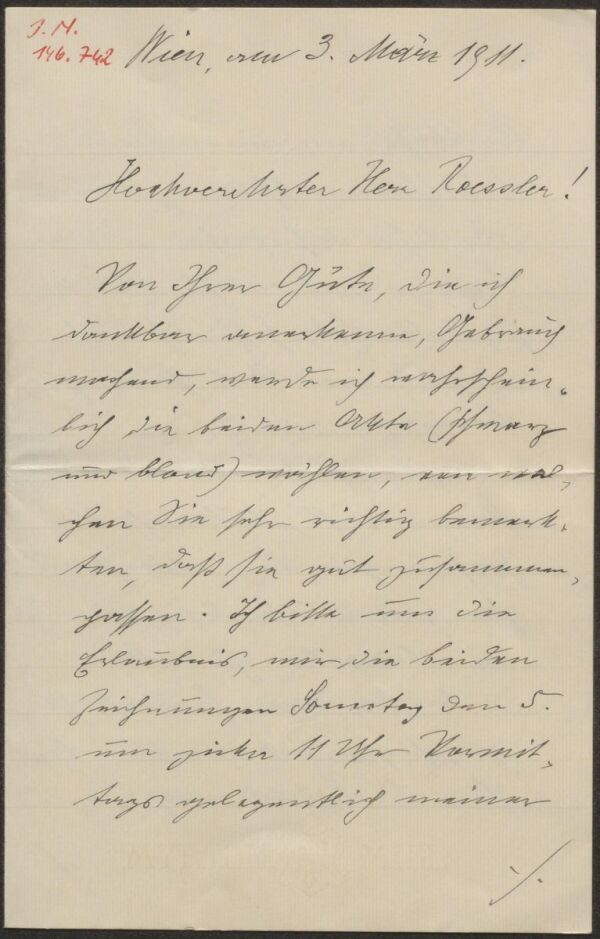 J. N.
146.742
Wien, am 3. März 1911.
Hochverehrter Herr Roessler!
Von Ihrer Güte, die ich
dankbar anerkenne, Gebrauch
machend, werde ich wahrschein-
lich die beiden Akte (schwarz
und blond) wählen, von wel-
chen Sie sehr richtig bemerk-
ten, daß sie gut zusammen-
passen. Ich bitte um die
Erlaubnis, mir die beiden
Zeichnungen Sonntag den 5.
um zirka 11 Uhr Vormit-
tags gelegentlich meiner
./.